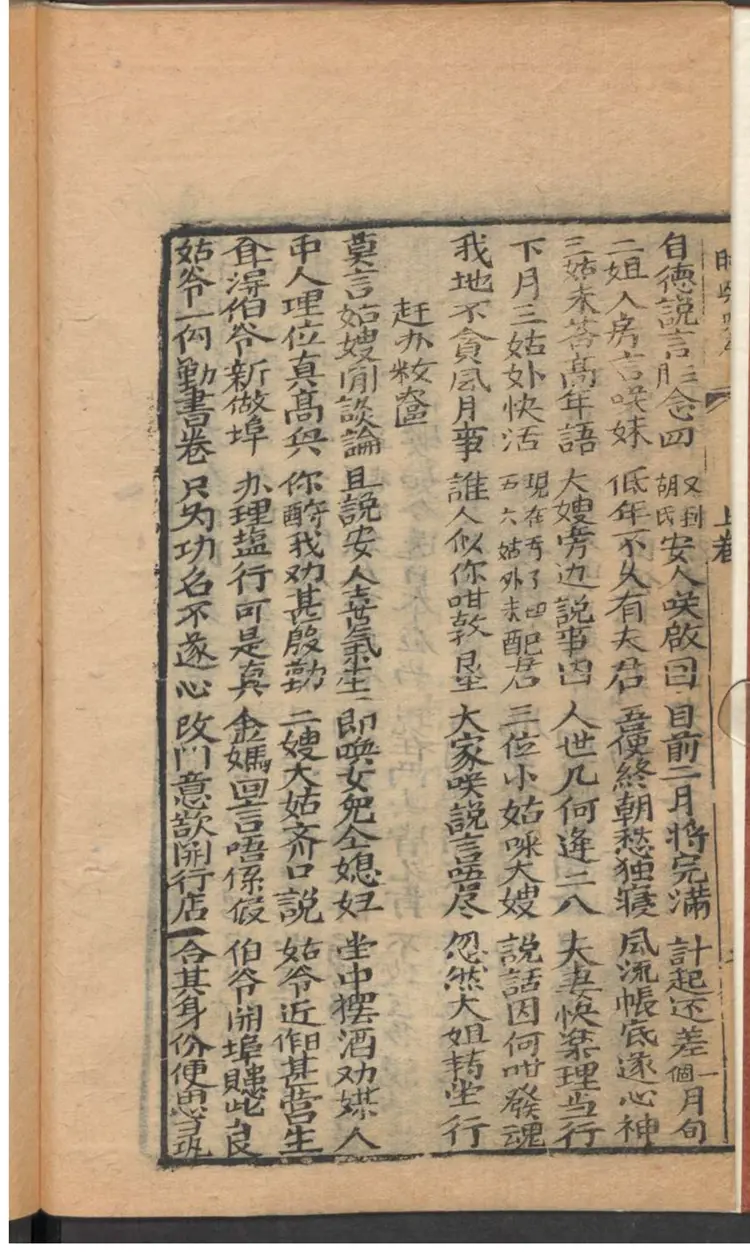 上卷
自德說言胜念四 又到胡氏安人咲啟回 目前二月將完滿 計起还差一個月旬
二姐入房言咲妹 低年不久有夫君 吾使終朝愁独寝 風流帳底遂心神
三姑未答高年語 大嫂旁边說事因 人世几何逢二八 夫妻快楽理当行
下月三姑外快活 現在 五六姑外未配君 三位小姑咪大嫂 說話因何咁發魂
我地不貪風月事 誰人似你咁教 大家咲說言唔尽 忽然大姐轉坐行
赶办粧奩
莫言姑嫂閒談論 且說安人喜氣 即喚女兒仝媳妇 坐中摆酒劝媒人
中人理位真高 你酧我劝甚殷勤 二嫂大姑齐口說 姑爷近作甚营生
伯爷新做埠 办理塩行可是真 金媽回言唔係假 伯爷開埠賺此
姑爷一向勤書卷 只为功名不遂心 改門意欲開行店 合其身份便思